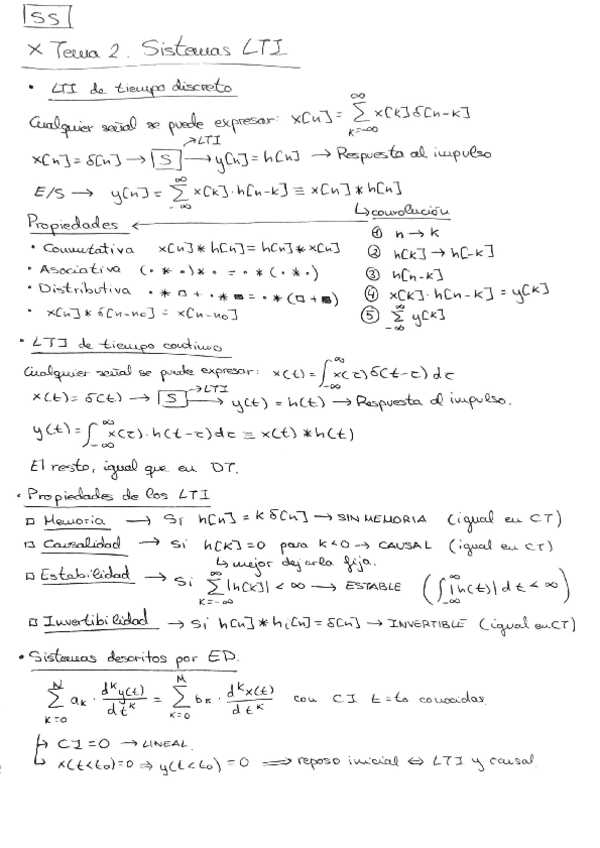 SS
x Tema 2. Sistemas LTI
• LTI de tiempo discreto
Cualquier señal se puede expresar: x[n] = ∑_{k=-∞}^{∞} x[k]δ[n-k]
x[n] = δ[n] → [S] → y[n] = h[n] → Respuesta al impulso
→ LTI
E/S → y[n] = ∑_{-∞}^{∞} x[k]·h[n-k] ≡ x[n] * h[n]
↳ convolución
Propiedades ←
① n → k
• Conmutativa x[n] * h[n] = h[n] * x[n]
② h[k] → h[-k]
• Asociativa (• * •) * • = • * (• * •)
③ h[n-k]
• Distributiva • * □ + • * ■ = • * (□ + ■)
④ x[k]·h[n-k] = y[k]
• x[n] * δ[n-n0] = x[n-n0]
⑤ ∑_{-∞}^{∞} y[k]
• LTI de tiempo continuo
Cualquier señal se puede expresar: x(t) = ∫_{-∞}^{∞} x(τ)δ(t-τ)dτ
x(t) = δ(t) → [S] → y(t) = h(t) → Respuesta al impulso.
→ LTI
y(t) = ∫_{-∞}^{∞} x(τ)·h(t-τ)dτ ≡ x(t) * h(t)
El resto, igual que en DT.
• Propiedades de los LTI
□ Memoria → Si h[n] = kδ[n] → SIN MEMORIA (igual en CT)
□ Causalidad → Si h[k] = 0 para k<0 → CAUSAL (igual en CT)
↳ mejor dejarla fija.
□ Estabilidad → Si ∑_{k=-∞}^{∞} |h[k]| < ∞ → ESTABLE (∫_{-∞}^{∞} |h(t)| dt < ∞)
□ Invertibilidad → Si h[n] * hi[n] = δ[n] → INVERTIBLE (igual en CT)
• Sistemas descritos por ED.
∑_{k=0}^{N} ak · d^k y(t)/dt^k = ∑_{k=0}^{M} bk · d^k x(t)/dt^k con CI t=to conocidas.
↳ CI = 0 → LINEAL.
↳ x(t<to) = 0 ⇒ y(t<to) = 0 ⇒ reposo inicial ⇔ LTI y causal.